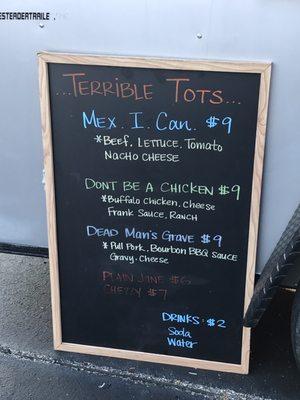 ...Terrible Tots...
Mex. I. Can. $9
*Beef, Lettuce, Tomato
Nacho Cheese
Dont Be A Chicken $9
*Buffalo Chicken, Cheese
Frank Sauce, Ranch
Dead Man's Grave $9
*Pull Pork, Bourbon BBQ Sauce
Gravy, Cheese
Plain Jane $6
Chezy $7
Drinks: $2
Soda
Water